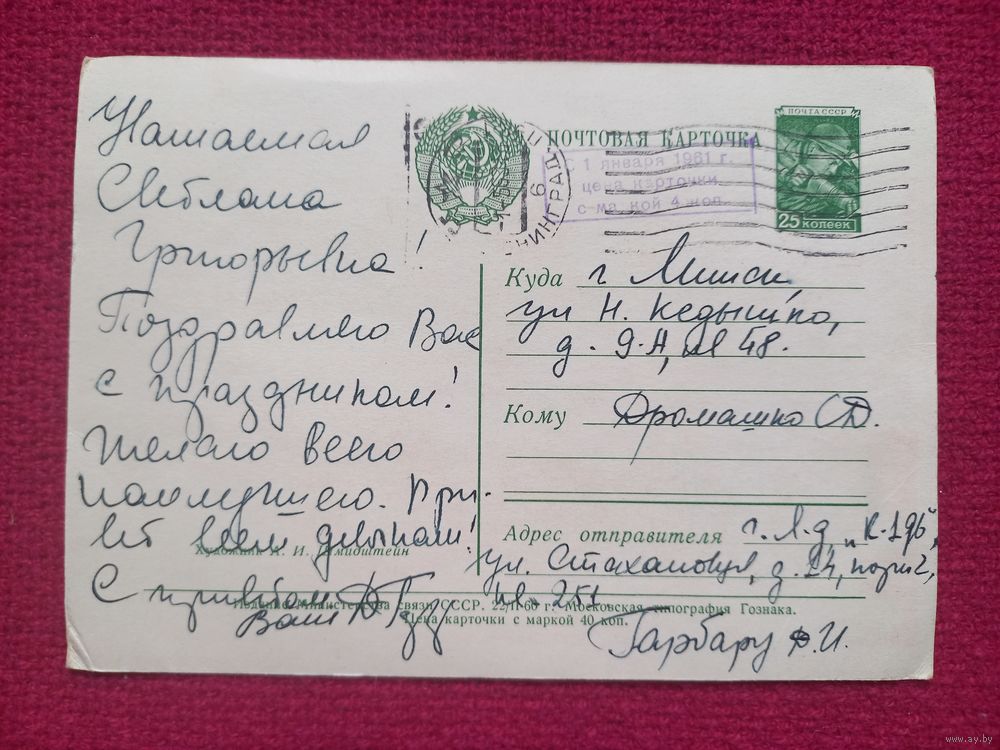 Уважаемая
Светлана
Григорьевна!
Поздравляю Вас
с праздником!
Желаю всего
наилучшего. При-
вет всем девчатам!
С приветом
Ваш
ПОЧТОВАЯ КАРТОЧКА
С 1 января 1961 г.
цена карточки
с ма кой 4 коп.
ПОЧТА СССР
25 копеек
Куда г Минск
ул Н. Кедышко,
д. 9-А, кв 48.
Кому Дромашко С.
Адрес отправителя г. Л-д „К-196",
ул. Стахановцев, д. 14,
кв. 251
Гарбару И.
Художник И.
Издание Министерства связи СССР. 22/II-60 г. Московская типография Гознака.
Цена карточки с маркой 40 коп.
www.ay.by